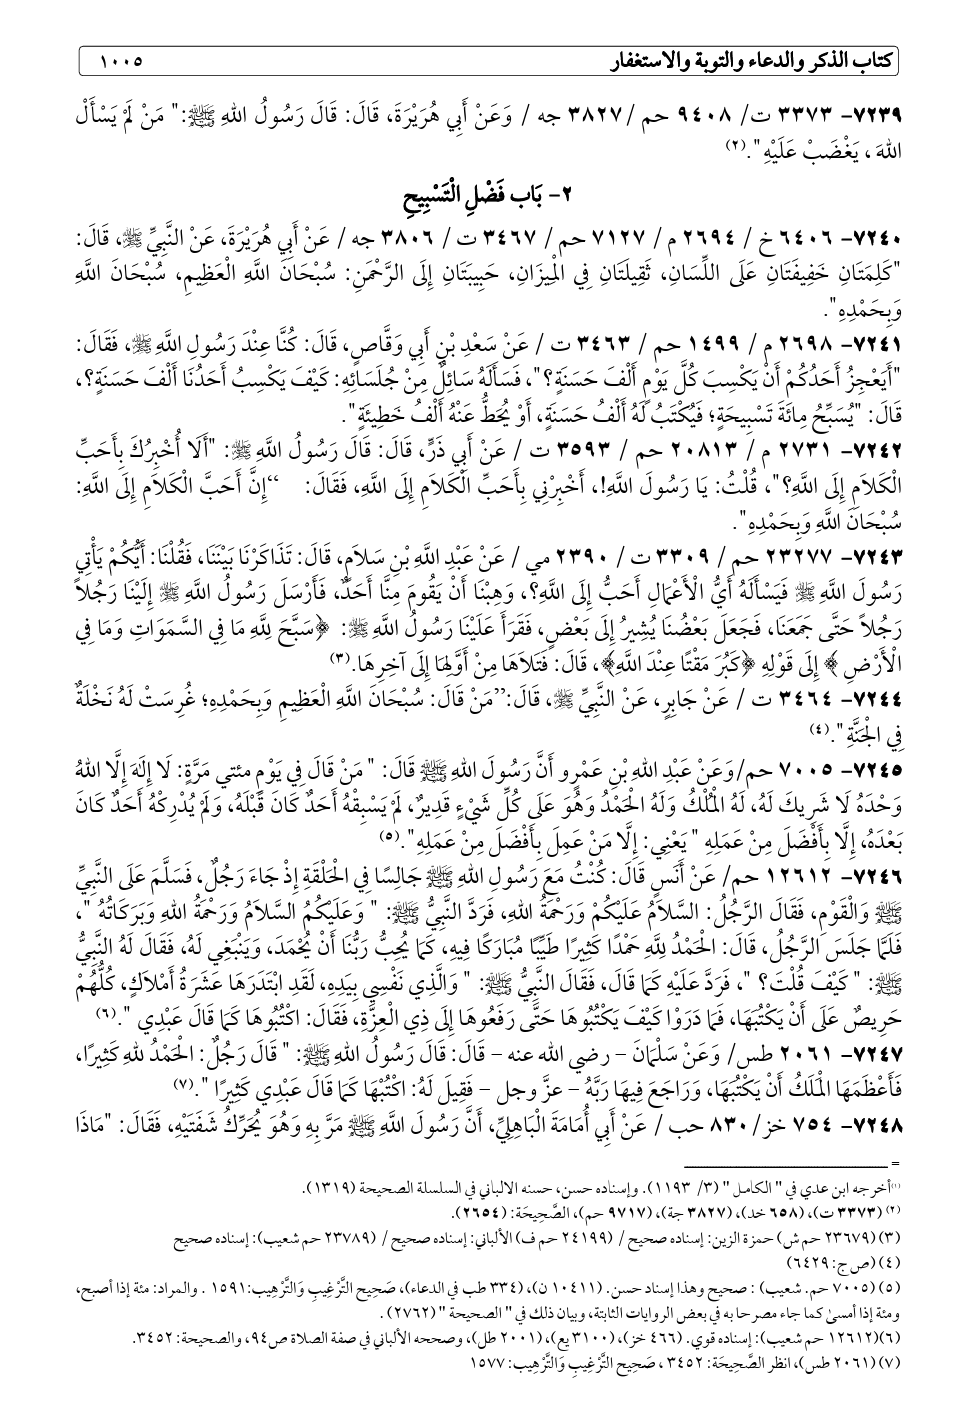 كتاب الذكر والدعاء والتوبة والاستغفار ١٠٠٥
٧٢٣٩- ٣٣٧٣ ت/ ٩٤٠٨ حم /٣٨٢٧ جه / وَعَنْ أَبِي هُرَيْرَةَ، قَالَ: قَالَ رَسُولُ اللهِ ﷺ:" مَنْ لَمْ يَسْأَلْ
اللهَ ، يَغْضَبْ عَلَيْهِ".(٢)
٢- بَاب فَضْلِ الْتَسْبِيحِ
٧٢٤٠- ٦٤٠٦ خ / ٢٦٩٤ م/ ٧١٢٧ حم/ ٣٤٦٧ ت / ٣٨٠٦ جه / عَنْ أَبِي هُرَيْرَةَ، عَنْ النَّبِيِّ ﷺ، قَالَ:
"كَلِمَتَانِ خَفِيفَتَانِ عَلَى اللِّسَانِ، ثَقِيلَتَانِ فِي الْمِيزَانِ، حَبِيبَتَانِ إِلَى الرَّحْمَنِ: سُبْحَانَ اللَّهِ الْعَظِيمِ، سُبْحَانَ اللَّهِ
وَبِحَمْدِهِ".
٧٢٤١- ٢٦٩٨ م / ١٤٩٩ حم / ٣٤٦٣ ت / عَنْ سَعْدِ بْنِ أَبِي وَقَّاصٍ، قَالَ: كُنَّا عِنْدَ رَسُولِ اللَّهِ ﷺ، فَقَالَ:
"أَيَعْجِزُ أَحَدُكُمْ أَنْ يَكْسِبَ كُلَّ يَوْمٍ أَلْفَ حَسَنَةٍ؟"، فَسَأَلَهُ سَائِلٌ مِنْ جُلَسَائِهِ: كَيْفَ يَكْسِبُ أَحَدُنَا أَلْفَ حَسَنَةٍ؟،
قَالَ: "يُسَبِّحُ مِائَةَ تَسْبِيحَةٍ؛ فَيُكْتَبُ لَهُ أَلْفُ حَسَنَةٍ، أَوْ يُحَطُّ عَنْهُ أَلْفُ خَطِيئَةٍ".
٧٢٤٢- ٢٧٣١ م / ٢٠٨١٣ حم / ٣٥٩٣ ت / عَنْ أَبِي ذَرٍّ، قَالَ: قَالَ رَسُولُ اللهِ ﷺ: "أَلَا أُخْبِرُكَ بِأَحَبِّ
الْكَلَامِ إِلَى اللَّهِ؟"، قُلْتُ: يَا رَسُولَ اللهِ!، أَخْبِرْنِي بِأَحَبِّ الْكَلَامِ إِلَى اللهِ، فَقَالَ: “إِنَّ أَحَبَّ الْكَلَامِ إِلَى اللَّهِ:
سُبْحَانَ اللَّهِ وَبِحَمْدِهِ".
٧٢٤٣- ٢٣٢٧٧ حم/ ٣٣٠٩ ت/ ٢٣٩٠ مي / عَنْ عَبْدِ اللَّهِ بْنِ سَلَامٍ، قَالَ: تَذَاكَرْنَا بَيْنَنَا، فَقُلْنَا: أَيُّكُمْ يَأْتِي
رَسُولَ اللهِ ﷺ فَيَسْأَلَهُ أَيُّ الْأَعْمَالِ أَحَبُّ إِلَى اللهِ؟، وَهِبْنَا أَنْ يَقُومَ مِنَّا أَحَدٌ، فَأَرْسَلَ رَسُولُ اللهِ ﷺ إِلَيْنَا رَجُلاً
رَجُلاً حَتَّى جَمَعَنَا، فَجَعَلَ بَعْضُنَا يُشِيرُ إِلَى بَعْضٍ، فَقَرَأَ عَلَيْنَا رَسُولُ اللهِ ﷺ: ﴿سَبَّحَ لِلَّهِ مَا فِي السَّمَوَاتِ وَمَا فِي
الْأَرْضِ﴾ إِلَى قَوْلِهِ ﴿كَبُرَ مَقْتًا عِنْدَ اللهِ﴾، قَالَ: فَتَلَاهَا مِنْ أَوَّلِهَا إِلَى آخِرِهَا.(٣)
٧٢٤٤- ٣٤٦٤ ت / عَنْ جَابِرٍ، عَنْ النَّبِيِّ ﷺ، قَالَ:”مَنْ قَالَ: سُبْحَانَ اللهِ الْعَظِيمِ وَبِحَمْدِهِ؛ غُرِسَتْ لَهُ نَخْلَةٌ
فِي الْجَنَّةِ".(٤)
٧٢٤٥- ٧٠٠٥ حم/وَعَنْ عَبْدِ اللهِ بْنِ عَمْرٍو أَنَّ رَسُولَ اللهِ ﷺ قَالَ: " مَنْ قَالَ فِي يَوْمٍ مئتي مَرَّةٍ: لَا إِلَهَ إِلَّا اللهُ
وَحْدَهُ لَا شَرِيكَ لَهُ، لَهُ الْمُلْكُ وَلَهُ الْحَمْدُ وَهُوَ عَلَى كُلِّ شَيْءٍ قَدِيرٌ، لَمْ يَسْبِقْهُ أَحَدٌ كَانَ قَبْلَهُ، وَلَمْ يُدْرِكْهُ أَحَدٌ كَانَ
بَعْدَهُ، إِلَّا بِأَفْضَلَ مِنْ عَمَلِهِ " يَعْنِي: إِلَّا مَنْ عَمِلَ بِأَفْضَلَ مِنْ عَمَلِهِ".(٥)
٧٢٤٦- ١٢٦١٢ حم/ عَنْ أَنَسٍ قَالَ: كُنْتُ مَعَ رَسُولِ اللهِ ﷺ جَالِسًا فِي الْحَلْقَةِ إِذْ جَاءَ رَجُلٌ، فَسَلَّمَ عَلَى النَّبِيِّ
ﷺ وَالْقَوْمِ، فَقَالَ الرَّجُلُ: السَّلَامُ عَلَيْكُمْ وَرَحْمَةُ اللهِ، فَرَدَّ النَّبِيُّ ﷺ: " وَعَلَيْكُمُ السَّلَامُ وَرَحْمَةُ اللهِ وَبَرَكَاتُهُ "،
فَلَمَّا جَلَسَ الرَّجُلُ، قَالَ: الْحَمْدُ لِلَّهِ حَمْدًا كَثِيرًا طَيِّبًا مُبَارَكًا فِيهِ، كَمَا يُحِبُّ رَبُّنَا أَنْ يُحْمَدَ، وَيَنْبَغِي لَهُ، فَقَالَ لَهُ النَّبِيُّ
ﷺ: " كَيْفَ قُلْتَ؟ "، فَرَدَّ عَلَيْهِ كَمَا قَالَ، فَقَالَ النَّبِيُّ ﷺ: " وَالَّذِي نَفْسِي بِيَدِهِ، لَقَدِ ابْتَدَرَهَا عَشَرَةُ أَمْلَاكٍ، كُلُّهُمْ
حَرِيصٌ عَلَى أَنْ يَكْتُبَهَا، فَمَا دَرَوْا كَيْفَ يَكْتُبُوهَا حَتَّى رَفَعُوهَا إِلَى ذِي الْعِزَّةِ، فَقَالَ: اكْتُبُوهَا كَمَا قَالَ عَبْدِي ".(٦)
٧٢٤٧- ٢٠٦١ طس/ وَعَنْ سَلْمَانَ – رضي الله عنه – قَالَ: قَالَ رَسُولُ اللهِ ﷺ: " قَالَ رَجُلٌ: الْحَمْدُ للهِ كَثِيرًا،
فَأَعْظَمَهَا الْمَلَكُ أَنْ يَكْتُبَهَا، وَرَاجَعَ فِيهَا رَبَّهُ – عزَّ وجل – فَقِيلَ لَهُ: اكْتُبْهَا كَمَا قَالَ عَبْدِي كَثِيرًا ".(٧)
٧٢٤٨- ٧٥٤ خز/ ٨٣٠ حب / عَنْ أَبِي أُمَامَةَ الْبَاهِلِيِّ، أَنَّ رَسُولَ اللَّهِ ﷺ مَرَّ بِهِ وَهُوَ يُحَرِّكُ شَفَتَيْهِ، فَقَالَ: "مَاذَا
=
(١)أخرجه ابن عدي في " الكامل " (٣/ ١١٩٣). وإسناده حسن، حسنه الالباني في السلسلة الصحيحة (١٣١٩).
(٢) (٣٣٧٣ ت)، (٦٥٨ خد)، (٣٨٢٧ جة)، (٩٧١٧ حم)، الصَّحِيحَة: (٢٦٥٤).
(٣) (٢٣٦٧٩ حم ش) حمزة الزين: إسناده صحيح / (٢٤١٩٩ حم ف) الألباني: إسناده صحيح / (٢٣٧٨٩ حم شعيب): إسناده صحيح
(٤) (ص ج: ٦٤٢٩)
(٥) (٧٠٠٥ حم. شعيب) : صحيح وهذا إسناد حسن. (١٠٤١١ ن)، (٣٣٤ طب في الدعاء)، صَحِيح التَّرْغِيبِ وَالتَّرْهِيب: ١٥٩١ . والمراد: مئة إذا أصبح،
ومئة إذا أمسىٰ كما جاء مصرحا به في بعض الروايات الثابتة، وبيان ذلك في " الصحيحة " (٢٧٦٢) .
(٦)(١٢٦١٢ حم شعيب): إسناده قوي. (٤٦٦ خز)، (٣١٠٠ يع)، (٢٠٠١ طل)، وصححه الألباني في صفة الصلاة ص٩٤، والصحيحة: ٣٤٥٢.
(٧) (٢٠٦١ طس)، انظر الصَّحِيحَة: ٣٤٥٢ ، صَحِيح التَّرْغِيبِ وَالتَّرْهِيب: ١٥٧٧